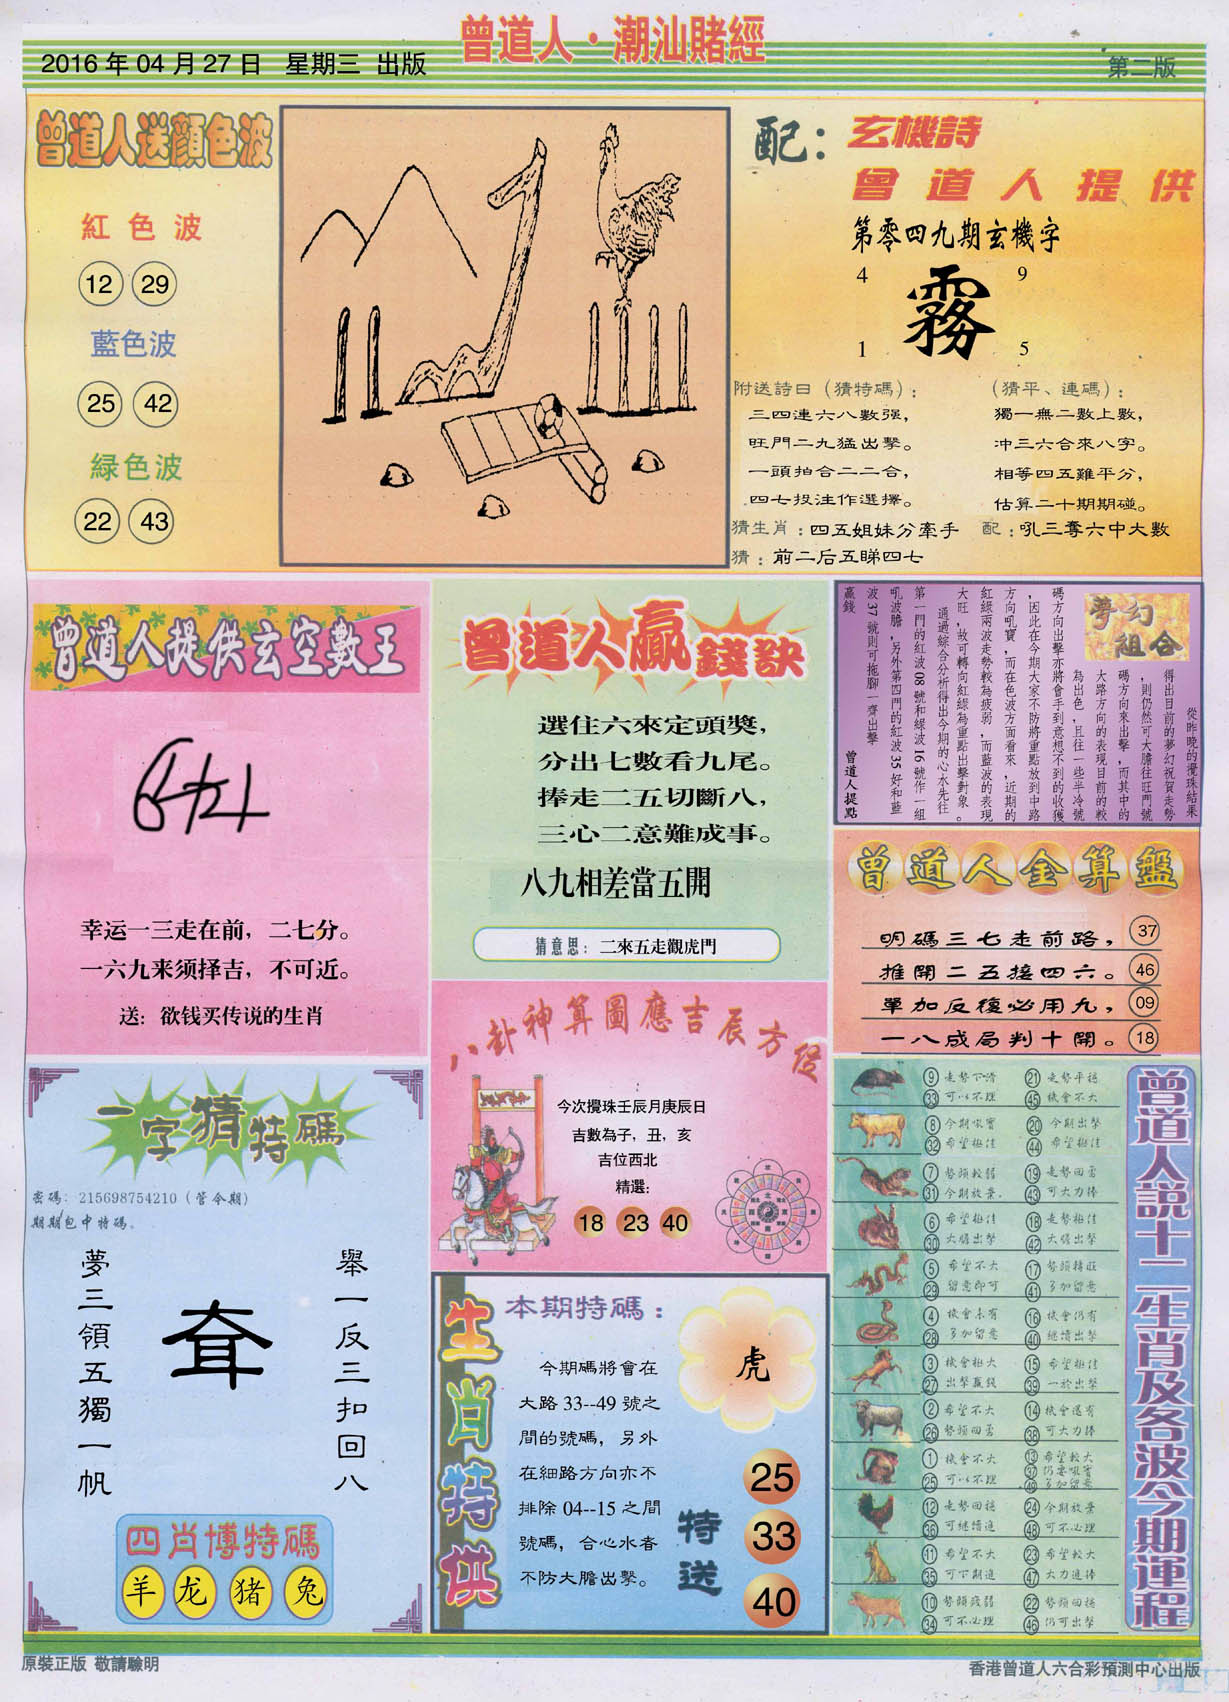 曾道人·潮汕賭經
2016 年 04 月 27 日 星期三 出版
第二版
曾道人送顏色波
紅色波
12 29
藍色波
25 42
緑色波
22 43
配：玄機詩
曾道人提供
第零四九期玄機字
4 9
霧
1 5
附送詩曰（猜特碼）：
三四連六八數强，
旺門二九猛出擊。
一頭拍合二二合，
四七投注作選擇。
（猜平、連碼）：
獨一無二數上數，
冲三六合來八字。
相等四五難平分，
估算二十期期碰。
猜生肖：四五姐妹分牽手
配：吼三奪六中大數
猜：前二后五睇四七
曾道人提供玄空數王
幸运一三走在前，二七分。
一六九来须择吉，不可近。
送：欲钱买传说的生肖
曾道人贏錢訣
選住六來定頭獎，
分出七數看九尾。
捧走二五切斷八，
三心二意難成事。
八九相差當五開
猜意思：二來五走觀虎門
夢幻組合
從昨晚的攪珠結果
得出目前的夢幻祝賀走勢
，則仍然可大膽往旺門號
碼方向來出擊，而其中的
大路方向的表現目前的較
為出色，且往一些半冷號
碼方向出擊亦將會手到意想不到的收獲
，因此在今期大家不防將重點放到中路
方向吼寶，而在色波方面看來，近期的
紅緑兩波走勢較為疲弱，而藍波的表現
大旺，故可轉向紅緑為重點出擊對象。
通過綜合分析得出今期的心水先往
第一門的紅波 08 號和緑波 16 號作一組
吼波膽，另外第四門的紅波 35 好和藍
波 37 號則可拖腳一齊出擊
贏錢
曾道人提點
曾道人金算盤
明碼三七走前路， 37
推開二五接四六。 46
單加反復必用九， 09
一八成局判十開。 18
八卦神算圖應吉辰方位
今次攪珠壬辰月庚辰日
吉數為子，丑，亥
吉位西北
精選：
18 23 40
一字猜特碼
密碼：215698754210（管今期）
期期包中特碼。
夢三領五獨一帆
耷
舉一反三扣回八
四肖博特碼
羊 龙 猪 兔
生肖特供
本期特碼：
虎
今期碼將會在
大路 33--49 號之
間的號碼，另外
在細路方向亦不
排除 04--15 之間
號碼，合心水者
不防大膽出擊。
特送
25
33
40
曾道人說十二生肖及各波今期運程
9 走勢下滑 21 走勢平穩
33 可以不理 45 機會不大
8 今期吼寶 20 今期出擊
32 希望極佳 44 希望極佳
7 勢頭較弱 19 走勢回勇
31 今期放棄. 43 可大力捧
6 希望極佳 18 走勢極佳
30 大膽出擊 42 大膽出擊
5 希望不大 17 勢頭轉旺
29 留意即可 41 多加留意
4 機會未有 16 機會仍有
28 多加留意 40 繼續出擊
3 機會極大 15 希望極佳
27 出擊贏錢 39 一於出擊
2 希望不大 14 機會還有
26 勢頭回勇 38 可大力捧
1 機會不大 13 希望較大
25 可以不理 37 仍要吼實
49 多加留意
12 走勢回穩 24 今期放棄
36 可繼續追 48 可不必理
11 希望不大 23 希望較大
35 可下期追 47 大力追捧
10 勢頭疲弱 22 勢頭回穩
34 可不必理 46 仍可出擊
原裝正版 敬請驗明
香港曾道人六合彩預測中心出版